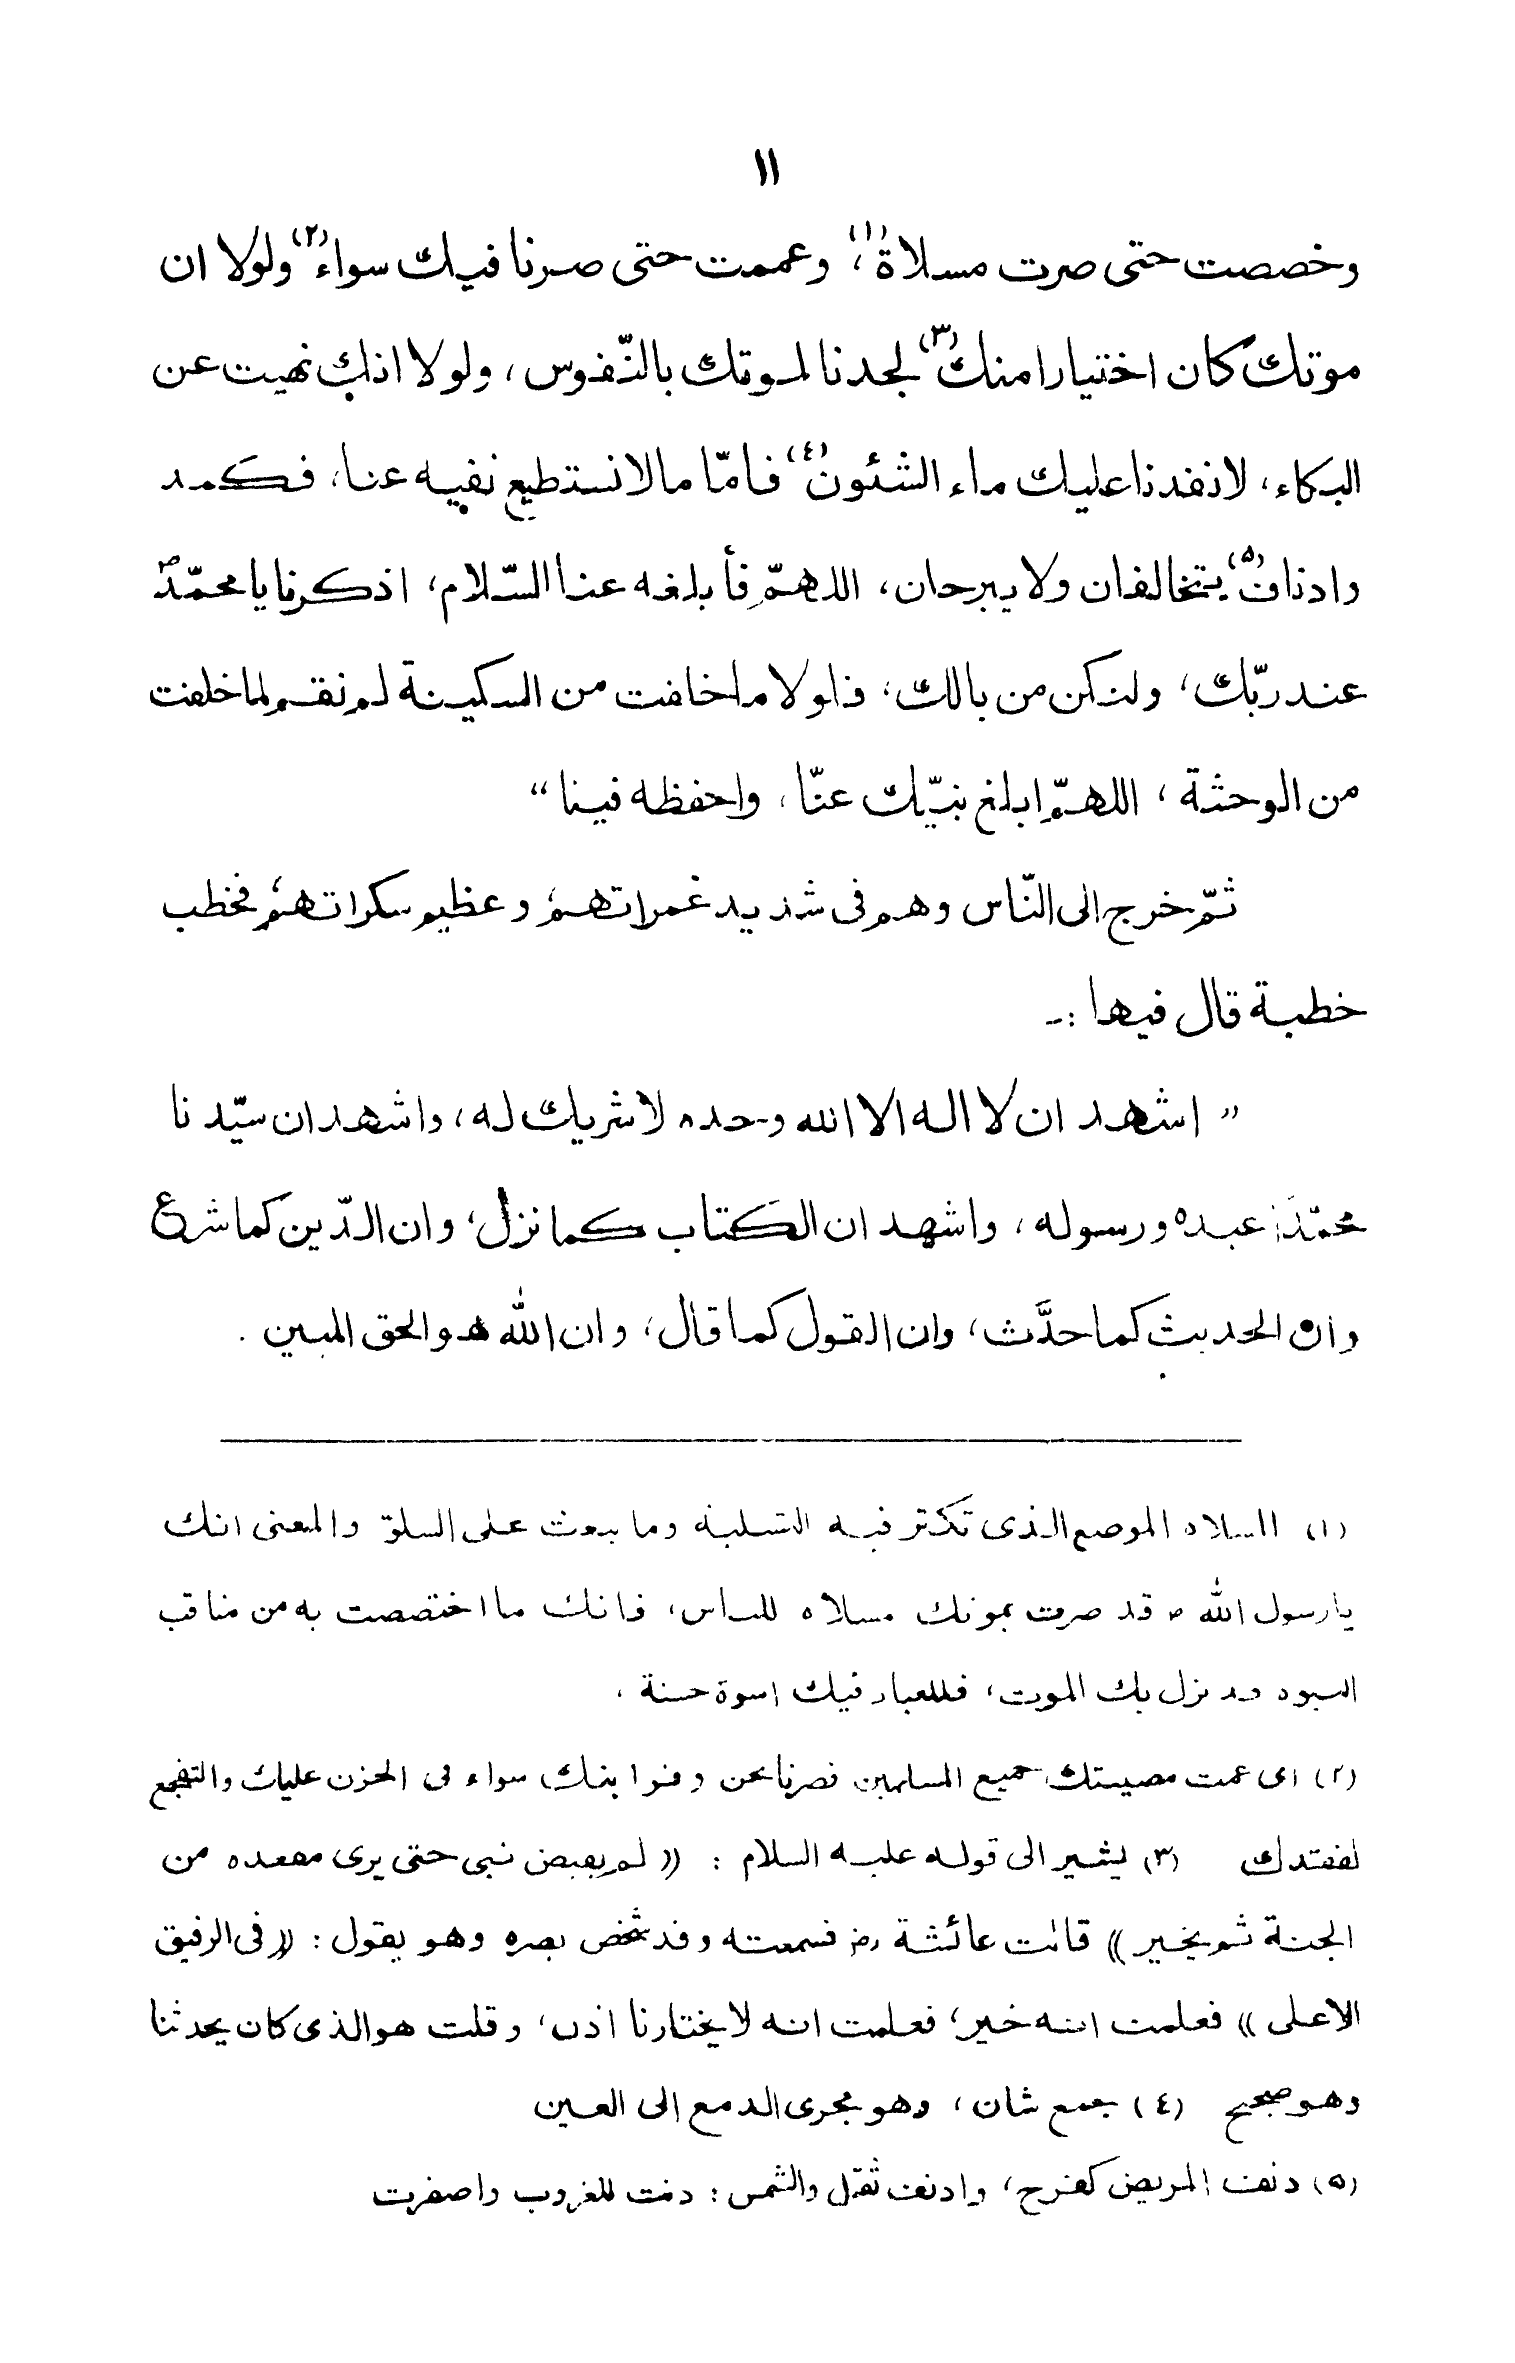 ١١
وخصصت حتى صرت مسلاة(١)، وعممت حتى صرنا فيك سواء(٢) ولولا ان
موتك كان اختيارا منك(٣) لجدنا لموتك بالنّفوس، ولولا انك نهيت عن
البكاء، لانفدنا عليك ماء الشئون(٤) فامّا مالا نستطيع نفيه عنا، فكمد
وادناف(٥) يتخالفان ولا يبرحان، اللهمّ فأبلغه عنا السّلام، اذكرنا يا محمّد ص
عند ربّك، ولنكن من بالك، فلولا ما خلفت من السكينة لم نقم لما خلفت
من الوحشة، اللهمّ ابلغ نبيّك عنّا، واحفظه فينا “
ثمّ خرج الى النّاس وهم فى شديد غمراتهم، وعظيم سكراتهم، فخطب
خطبة قال فيها :ـ
” اشهد ان لا اله الا الله وحده لا شريك له، واشهد ان سيّدنا
محمّدا عبده ورسوله، واشهد ان الكتاب كما نزل، وان الدّين كما شرع
وان الحديث كما حدَّث، وان القول كما قال، وان الله هو الحق المبين .
(١) المسلاه الموضع الذى تكثر فيه التسلية وما يبعث على السلو والمعنى انك
يا رسول الله ص قد صرت بموتك مسلاه للناس، فانك ما اختصصت به من مناقب
النبوه قد نزل بك الموت، فللعباد فيك اسوة حسنة .
(٢) اى عمت مصيبتك جميع المسلمين فصرنا نحن سواء فى الحزن عليك والتفجع
لفقدك (٣) يشير الى قوله عليه السلام : (( لم يقبض نبى حتى يرى مقعده من
الجنة ثم يخير )) قالت عائشة رض فسمعته وقد شخص بصره وهو يقول : (( فى الرفيق
الاعلى )) فعلمت انه خير، فعلمت انه لا يختارنا اذن، وقلت هو الذى كان يحدثنا
وهو صحيح (٤) جمع شان، وهو مجرى الدمع الى العين
(٥) دنف المريض كفرح، وادنف ثقل والشمس : دنت للغروب واصفرت